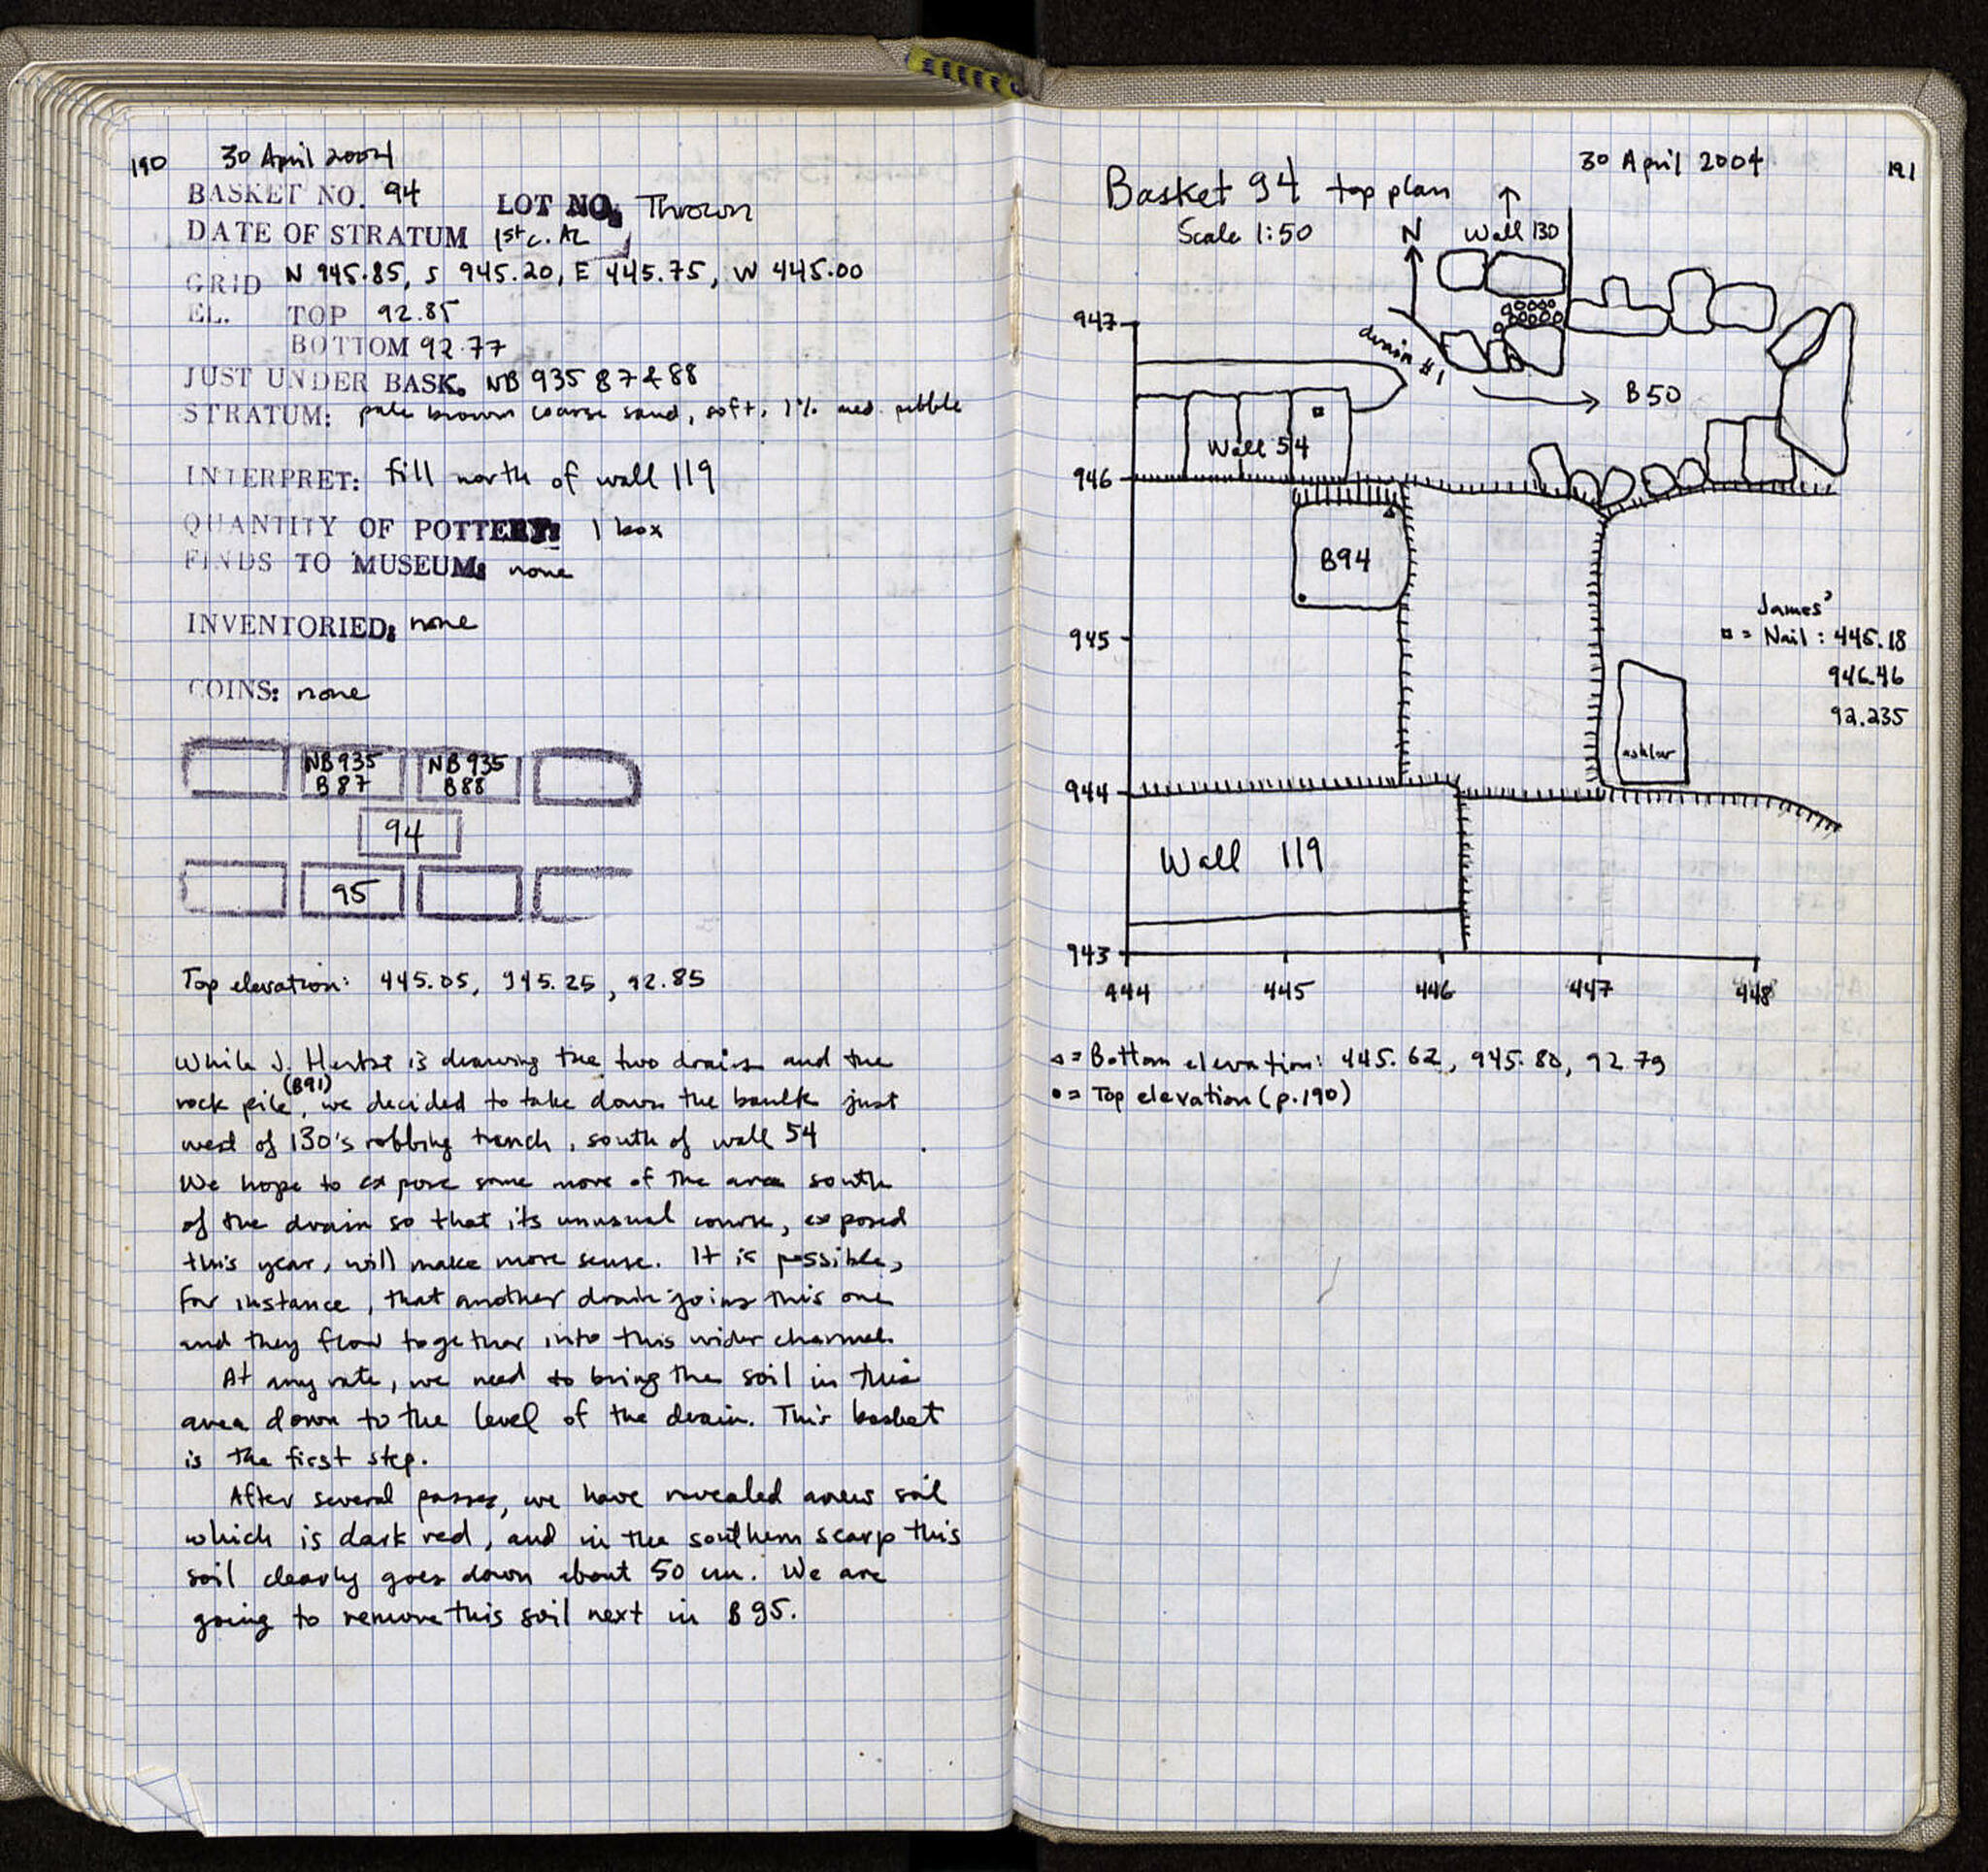 190 30 April 2004
BASKET NO. 94 LOT NO. Thrown
DATE OF STRATUM 1st c. AC
GRID N 945.85, S 945.20, E 445.75, W 445.00
EL. TOP 92.85
BOTTOM 92.77
JUST UNDER BASK. NB 935 87 & 88
STRATUM: pale brown coarse sand, soft, 1% med. pebble
INTERPRET: fill north of wall 119
QUANTITY OF POTTERY: 1 box
FINDS TO MUSEUM: none
INVENTORIED: none
COINS: none
NB 935 NB 935
B87 B88
94
95
Top elevation: 445.05, 945.25, 92.85
While J. Herbst is drawing the two drains and the
rock pile (B91), we decided to take down the baulk just
west of 130's robbing trench, south of wall 54
We hope to expose some more of the area south
of the drain so that its unusual course, exposed
this year, will make more sense. It is possible,
for instance, that another drain joins this one
and they flow together into this wider channel.
At any rate, we need to bring the soil in this
area down to the level of the drain. This basket
is the first step.
After several passes, we have revealed a new soil
which is dark red, and in the southern scarp this
soil clearly goes down about 50 cm. We are
going to remove this soil next in B95.
30 April 2004 191
Basket 94 top plan
Scale 1:50
N Wall 130
947
drain #1
B50
Wall 54
946
B94
James'
945 = Nail: 445.18
946.46
92.235
ashlar
944
Wall 119
943
444 445 446 447 448
▵ = Bottom elevation: 445.62, 945.80, 92.79
• = Top elevation (p.190)